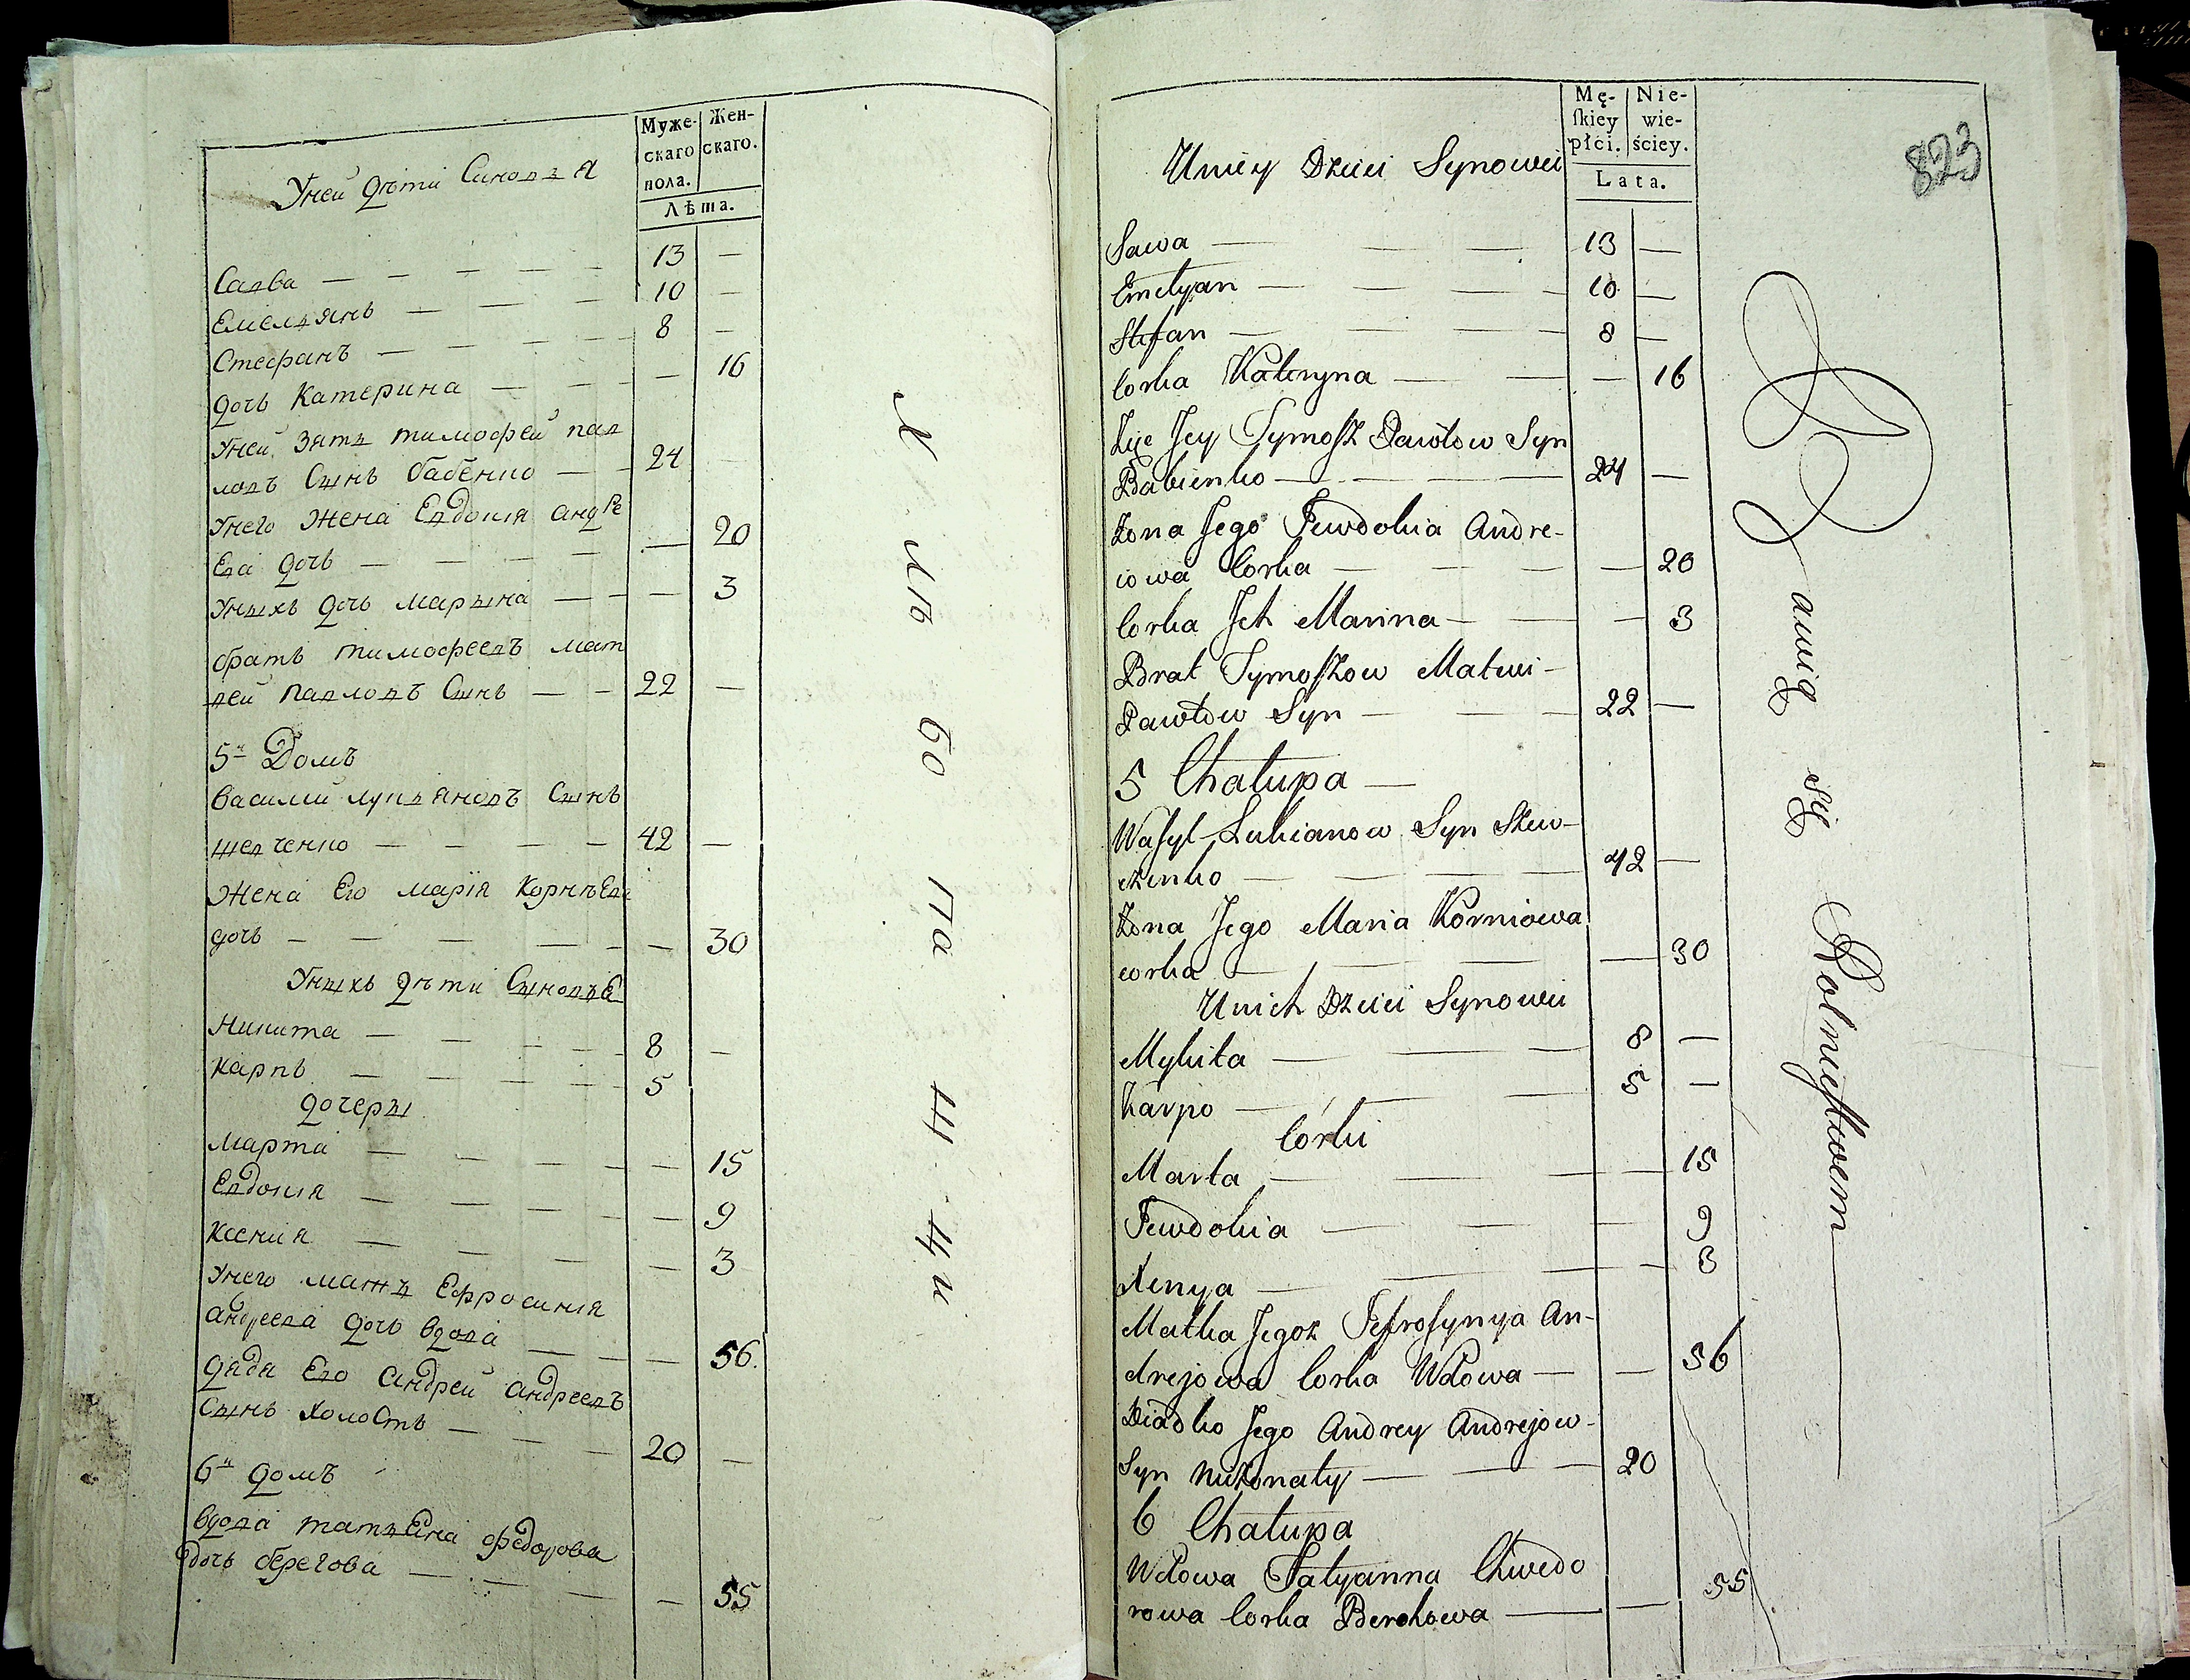 Муже-
скаго
пола.
Жен-
скаго.
Лѣта.
Уней дѣти Синовья
Савва — — — — — 13 —
Емельянъ — — — 10 —
Стефанъ — — — — 8 —
дочь Катерина — — — 16
Уней зять тимофей пав
ловъ Сынъ бабенко — — 24 —
Унего Жена Евдокия андре
ева дочь — — — — 20
Уныхъ дочь Марына — — — 3
братъ тимофеевъ мат
вей павловъ Сынъ — — 22 —
5й Домъ
василий лукьяновъ Сынъ
шевченко — — — — 42 —
Жена Его марія Корнѣева
дочь — — — — — 30
Уныхъ дѣти Сыновье
Никита — — — — 8 —
Карпъ — — — — 5
дочеры
Марта — — — — — 15
Евдокия — — — — 9
Ксения — — — — 3
Унего мать Ефросиния
андреева дочь вдова — — — 56.
дядя Его андрей андреевъ
Сынъ холостъ — — — 20 —
6й домъ
вдова татьеяна федорова
дочь берегова — — — — 55
Х лѣ бо па ш ци
Mę-
skiey
płci.
Nie-
wie-
ściey.
Lata.
823
Uniey Dzieci Synowei
Sawa — — — 13 —
Emelyan — — — — 10 —
Stefan — — — — 8 —
Corka Kateryna — — — 16
Zięć Jey Tymosz Pawłow Syn
Babienko — — — 24 —
Żona Jego Jewdokia Andre-
iowa Corka — — — — 20
Corka Ich Marina — — — 3
Brat Tymoszow Matwi-
Pawłow Syn — — — 22 —
5 Chałupa —
Wasyl Lukianow Syn Szew-
czenko — — — — 42 —
Żona Jego Maria Korniowa
corka — — — — 30
Unich Dzieci Synowei
Mykita — — — 8 —
Karpo — — — 5 —
Corki
Marta — — — 15
Jewdokia — — — 9
Xenya — — — — 3
Matka Jegoż Jefrosynya An-
drejowa Corka Wdowa — — 56
Diadko Jego Andrey Andrejow-
Syn Nieżonaty — — — 20
6 Chałupa
Wdowa Tatyanna Chwedo
rowa Corka Berehowa — — 55
Bawią się Rolnictwem